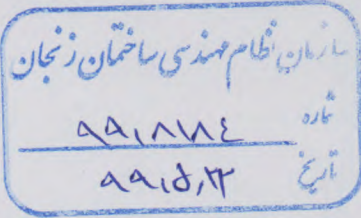 سازمان نظام مهندسی ساختمان زنجان
شماره ۹۹،۸۱۸۴
تاریخ ۹۹،۵،۲۳